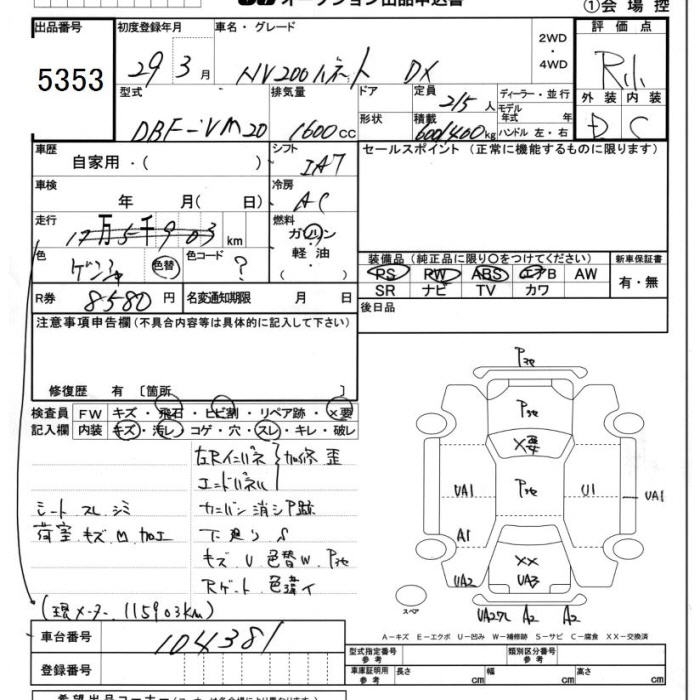 オークション出品申込書
①会場控
出品番号
5353
初度登録年月
29 3月
車名・グレード
NV200バネット DX
2WD
・
4WD
評価点
外装 内装
D C
型式
DBF-VM20
排気量
1600cc
ドア
形状
定員
2/5人
積載
600/400kg
ディーラー・並行
モデル
年式 年
ハンドル 左・右
車歴
自家用・( )
シフト
IA7
セールスポイント (正常に機能するものに限ります)
車検
年 月( 日)
冷房
AC
走行
12万5千903km
燃料
ガソリン
軽油
・( )・
色
色替
色コード
?
装備品 (純正品に限り○をつけてください)
PS PW ABS エアB AW
SR ナビ TV カワ
新車保証書
有・無
R券
8580円
名変通知期限 月 日
後日品
注意事項申告欄 (不具合内容等は具体的に記入して下さい)
修復歴 有 〔箇所 〕
検査員
記入欄
FW キズ・飛石・ヒビ割・リペア跡・×要
内装 キズ・汚レ・コゲ・穴・スレ・キレ・破レ
左Rインパネ
エンドパネル
加修 歪
シート スレ シミ
荷室 キズ M 加工
下廻り S
キズ U 色替W Pセ
Rゲート 色違イ
(現メーター 115903KM)
Pセ
Pセ
×要
Pセ
UA1
U1
UA1
A1
××
UA2
UA3
A2
A2
スペア
A－キズ E－エクボ U－凹み W－補修跡 S－サビ C－腐食 XX－交換済
車台番号
104381
登録番号
型式指定番号
参考
類別区分番号
参考
車庫証明用
参考
長さ cm
幅 cm
高さ cm
希望出品コーナー